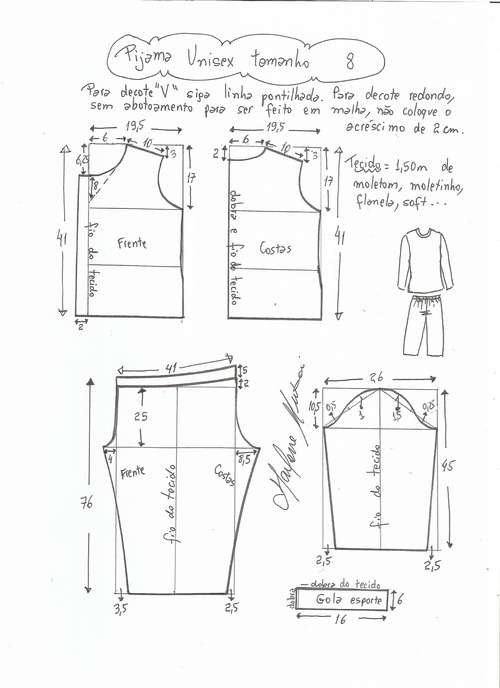 Pijama Unisex tamanho 8
Para decote "V" siga linha pontilhada. Para decote redondo,
sem abotoamento para ser feito em malha, não coloque o
acréscimo de 2 cm.
19,5
6
10
6,25
3
8
17
41
Frente
fio do tecido
2
19,5
6
10
2
3
17
41
Costas
dobra e fio do tecido
Tecido = 1,50m de
moletom, moletinho,
flanela, soft...
41
5
2
25
4
8,5
Frente
Costas
fio do tecido
76
3,5
2,5
26
10,5
0,5
1
1,5
0,25
45
fio do tecido
2,5
2,5
dobra do tecido
dobra
Gola esporte
6
16